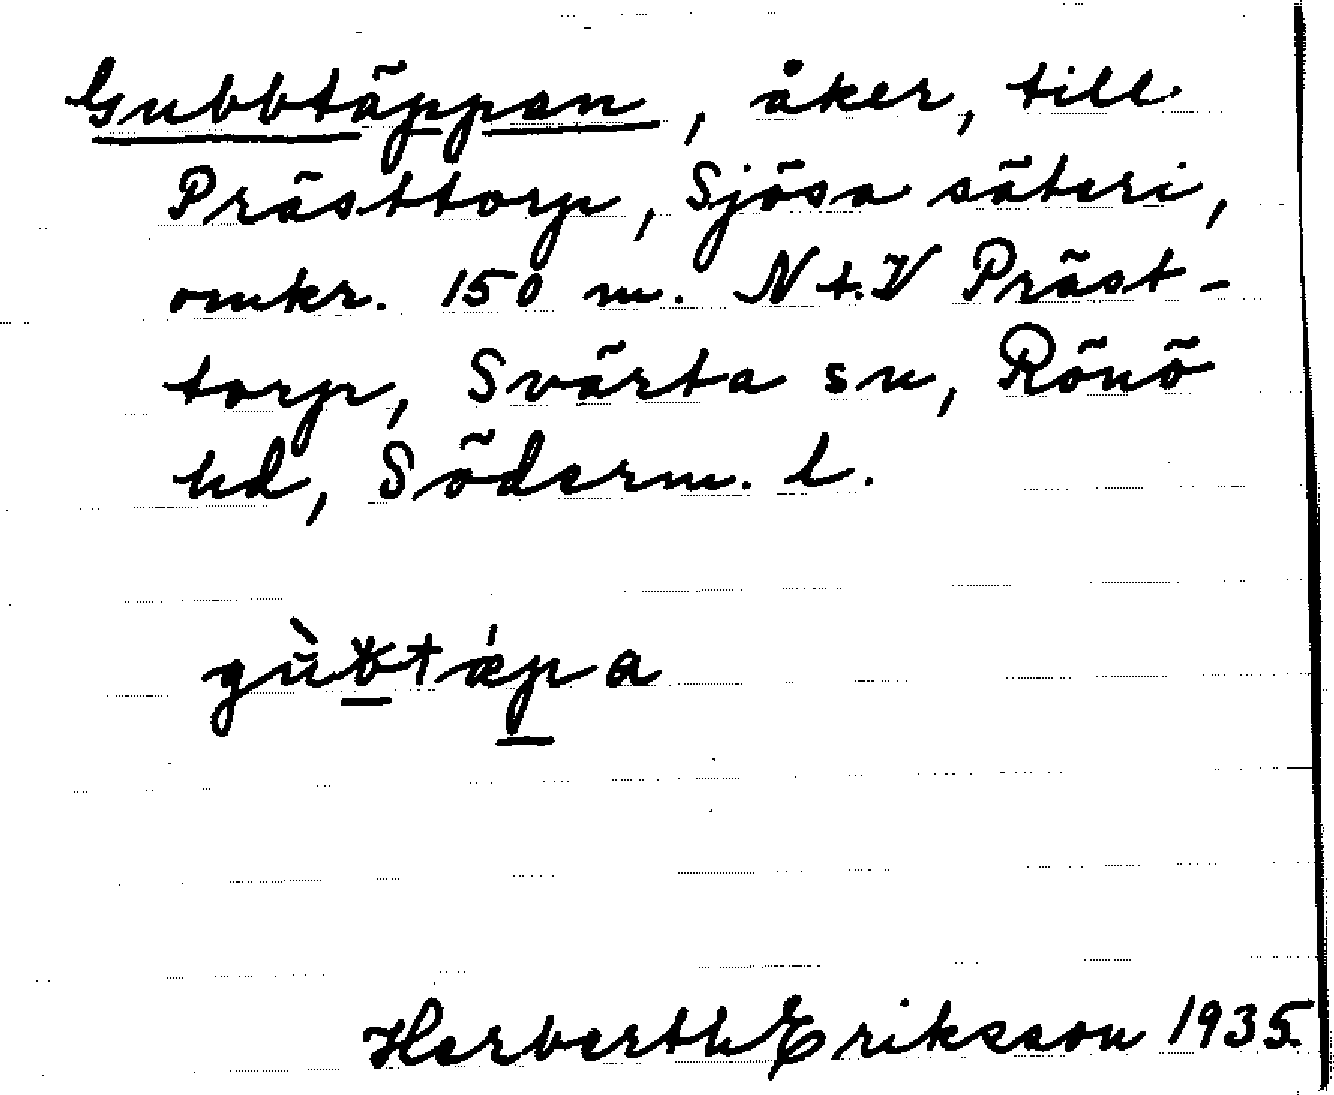 Gubbtäppan, åker, till
Prästtorp, Sjösa säteri,
omkr. 150 m. N t. V Präst-
torp, Svärta sn, Rönö
hd, Söderm. l.
Herberth Eriksson 1935.